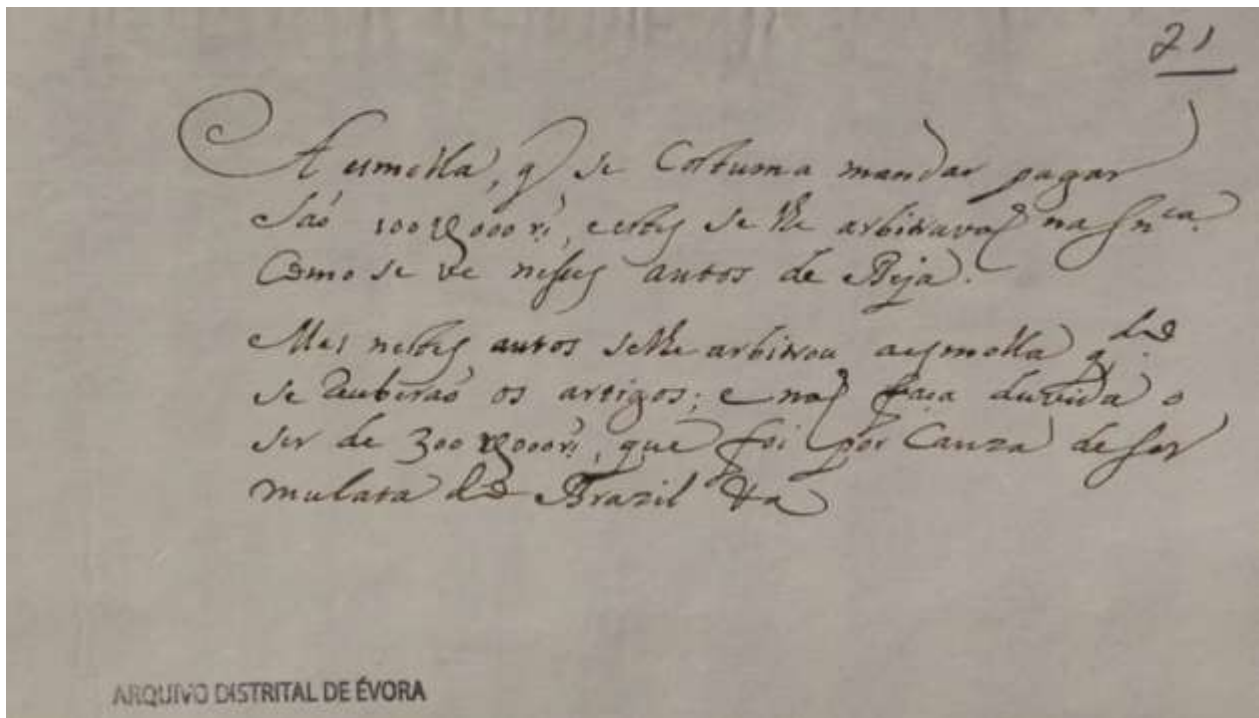 21
A esmolla, q se Costuma mandar pagar
são 100U000 rs, e estes se lhe arbitravão na Snca.
Como se ve nestes autos de Beja.
Mas nestes autos se lhe arbitrou a esmolla qdo
se Receberão os artigos; e não faça duvida o
ser de 300U000 rs, que foi por Cauza de ser
mulata do Brazil &a
ARQUIVO DISTRITAL DE ÉVORA